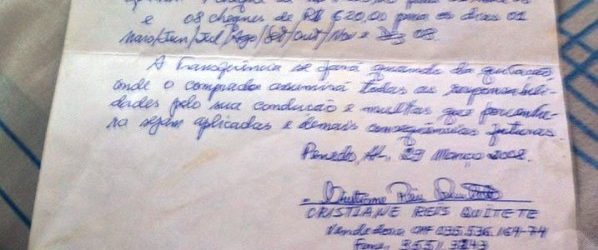 e 08 cheques de R$ 620,00 para os dias 01
Maio/Jun/Jul/Ago/Set/Out/Nov e Dez 08.
A Transferência se fará quando da quitação,
onde o comprador assumirá todas as responsabili-
dades pelo sua condução e multas que porventu-
ra sejam aplicadas e demais consequências futuras.
Penedo, AL, 29 Março 2008.
CRISTIANE REIS QUITETE
Vendedora CPF 035.536.164-74
Fone: 3551.3243